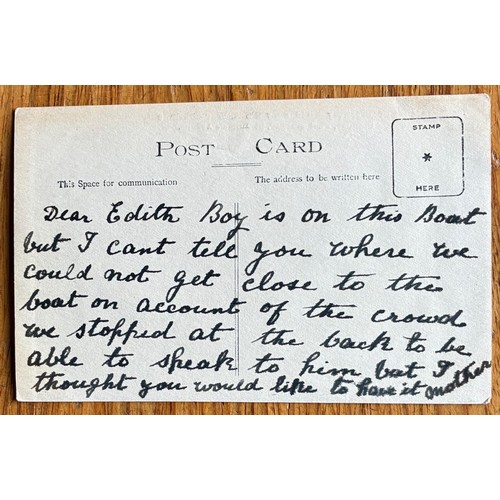 POST CARD
STAMP
HERE
This Space for communication
The address to be written here
Dear Edith Boy is on this Boat
but I cant tell you where we
could not get close to the
boat on account of the crowd
we stopped at the back to be
able to speak to him but I
thought you would like to have it mother